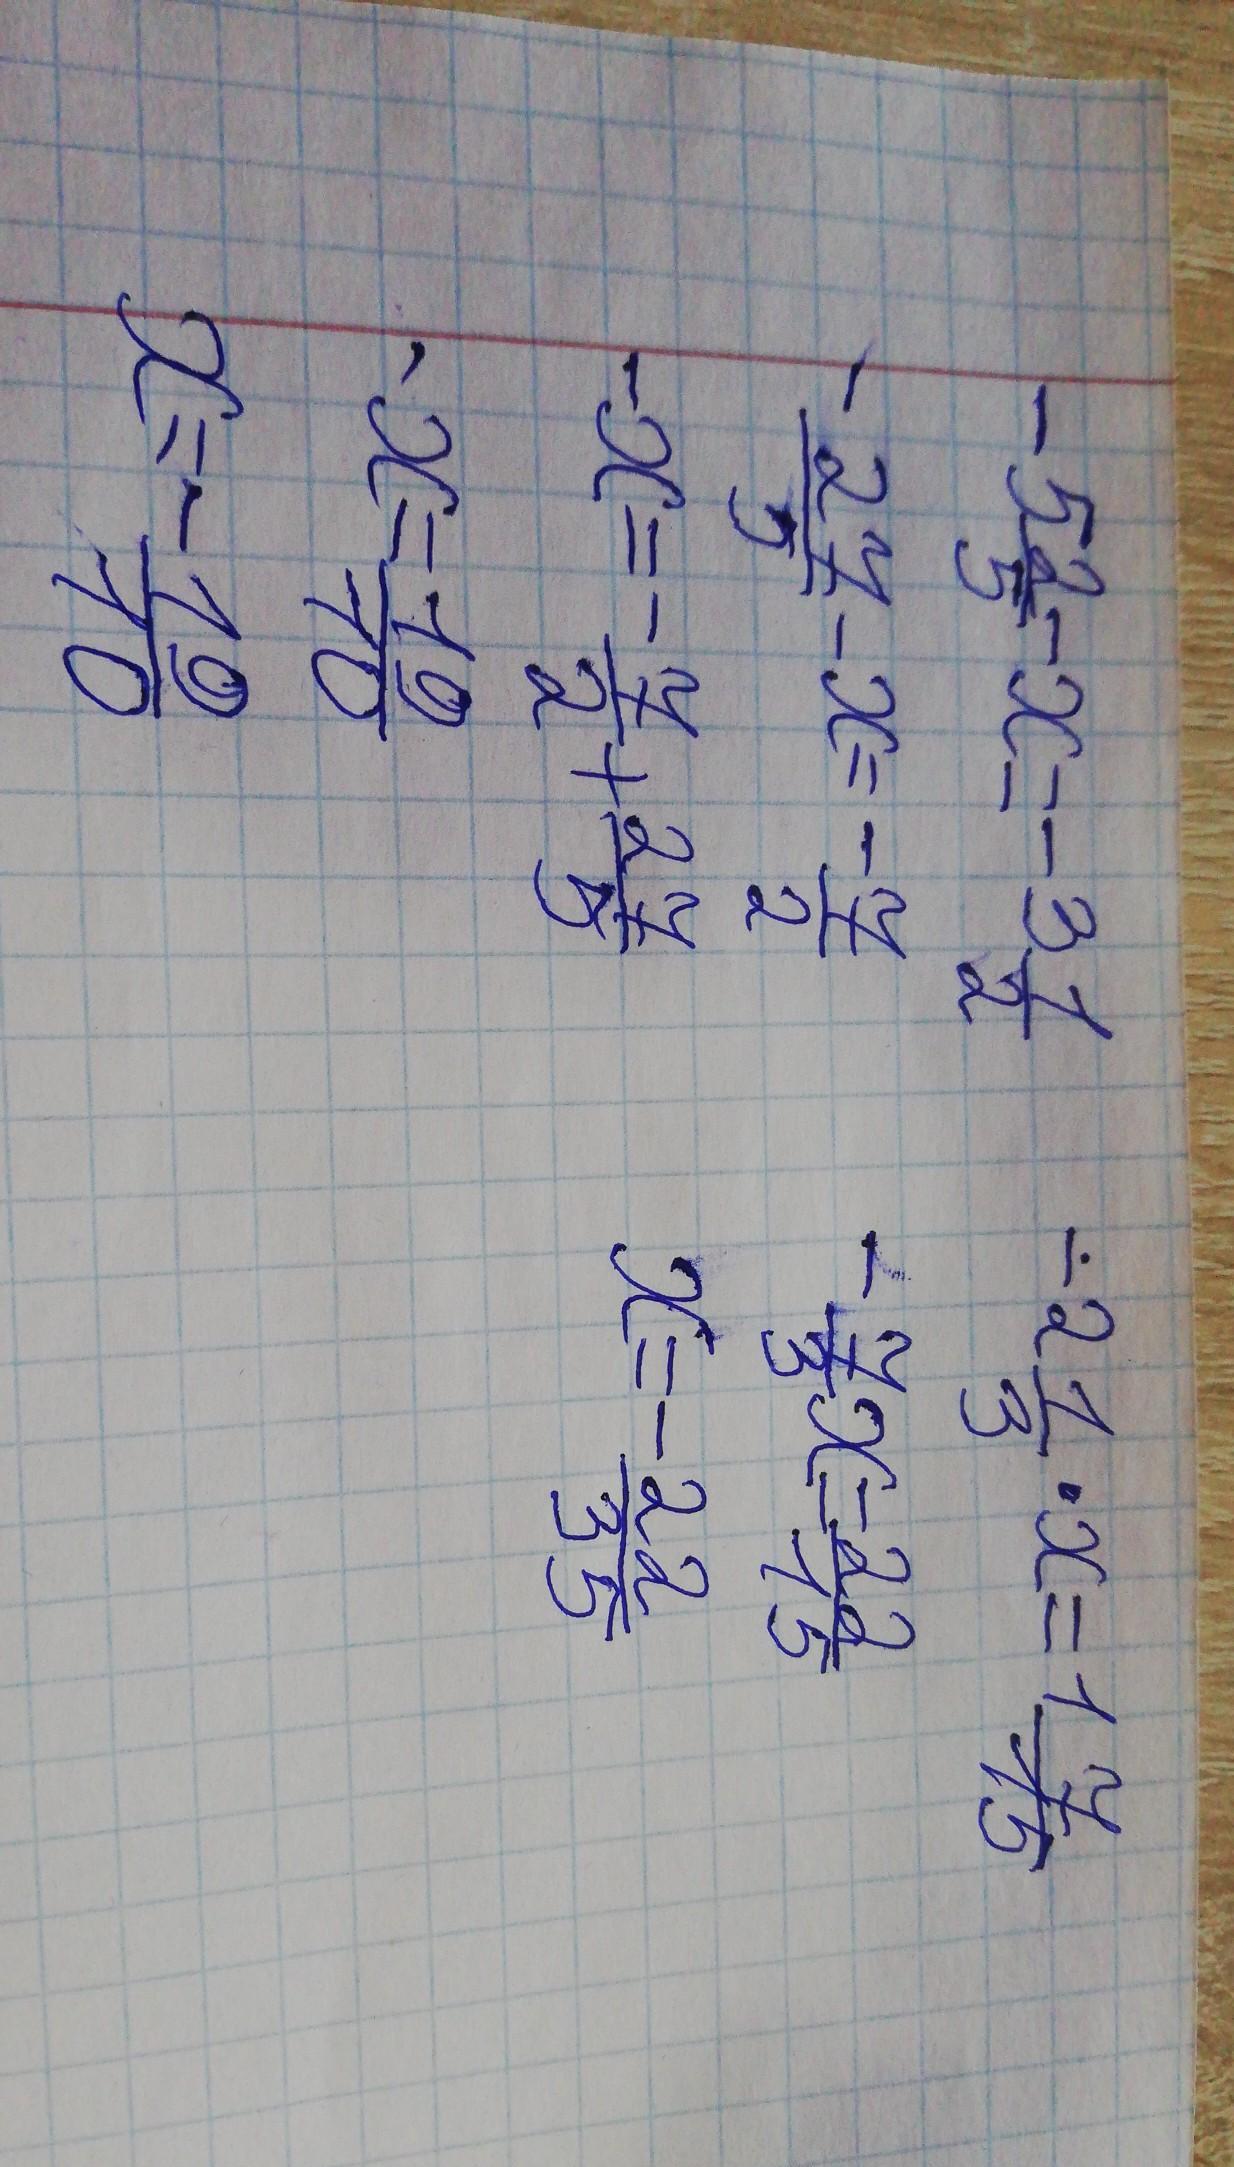 -5 2/5 - x = -3 1/2
-27/5 - x = -7/2
-x = -7/2 + 27/5
-x = 19/10
x = -19/10
-2 1/3 · x = 1 7/15
-7/3 x = 22/15
x = -22/35